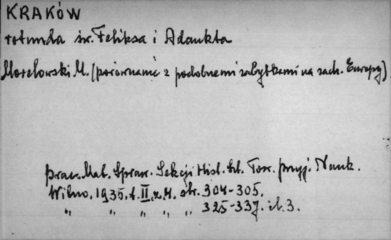 KRAKÓW
rotunda św. Feliksa i Adaukta
Morelowski M. (porównanie z podobnemi zabytkami na zach. Europy)
Prace Mat. Spraw. Sekcji Hist. Szt. Tow. przyj. Nauk.
Wilno, 1935, t. II, z. 4. str. 304-305.
" " " " " 325-337. il. 3.